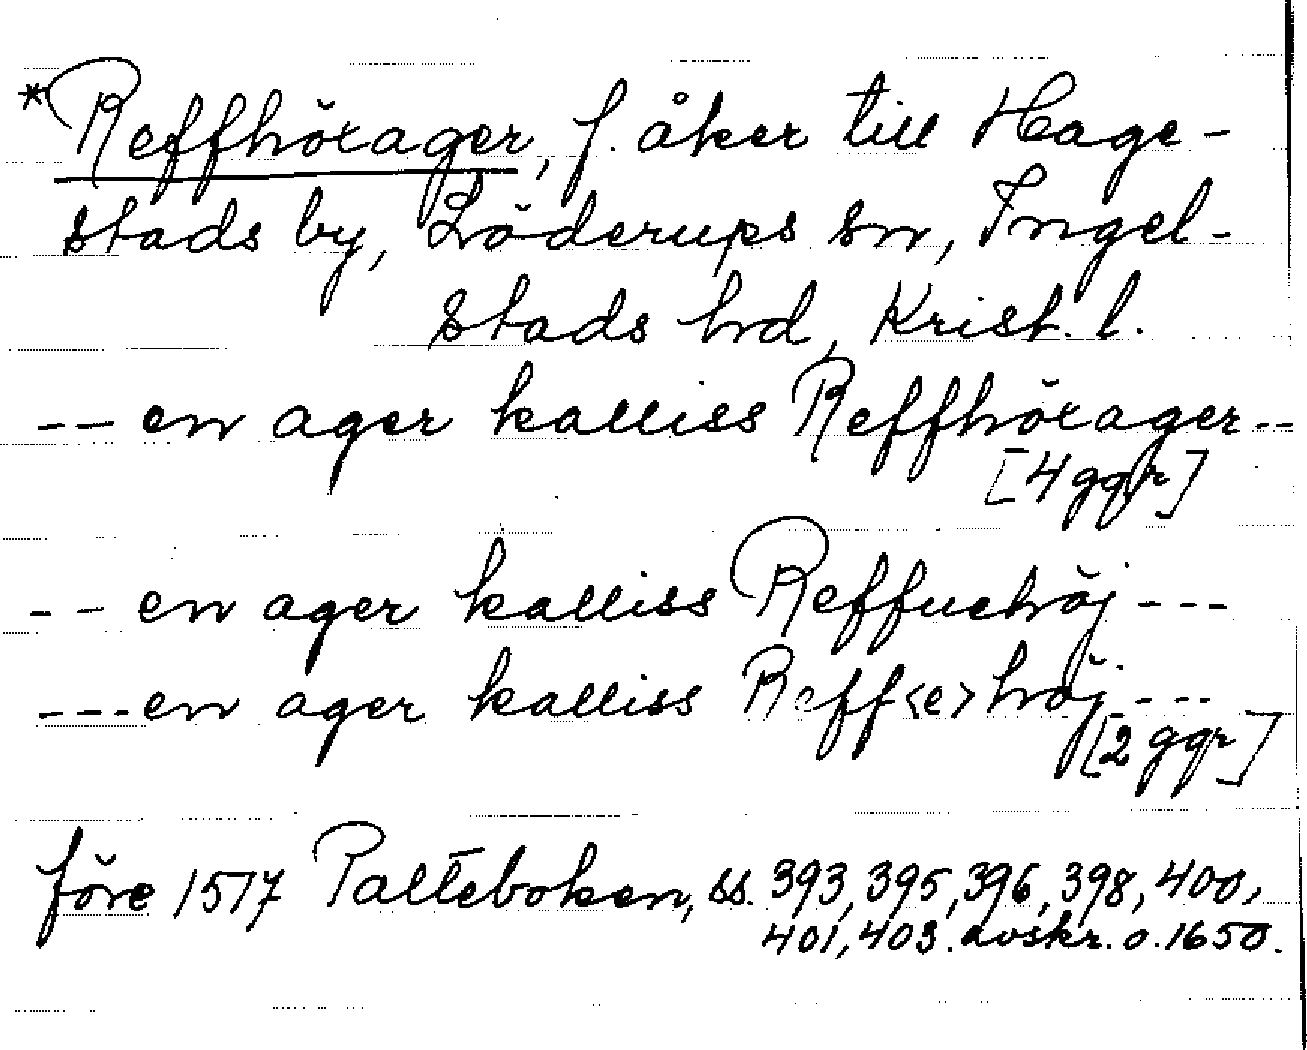 *Reffhörager, f. åker till Hage-
stads by, Löderups sn, Ingel-
stads hd, Krist. l.
--- en ager kalliss Reffhörager --
[4 ggr]
-- en ager kalliss Reffuehöj ---
--- en ager kalliss Reff<e>höj ---
[2 ggr]
före 1517 Palteboken, ss. 393, 395, 396, 398, 400,
401, 403. avskr. o. 1650.